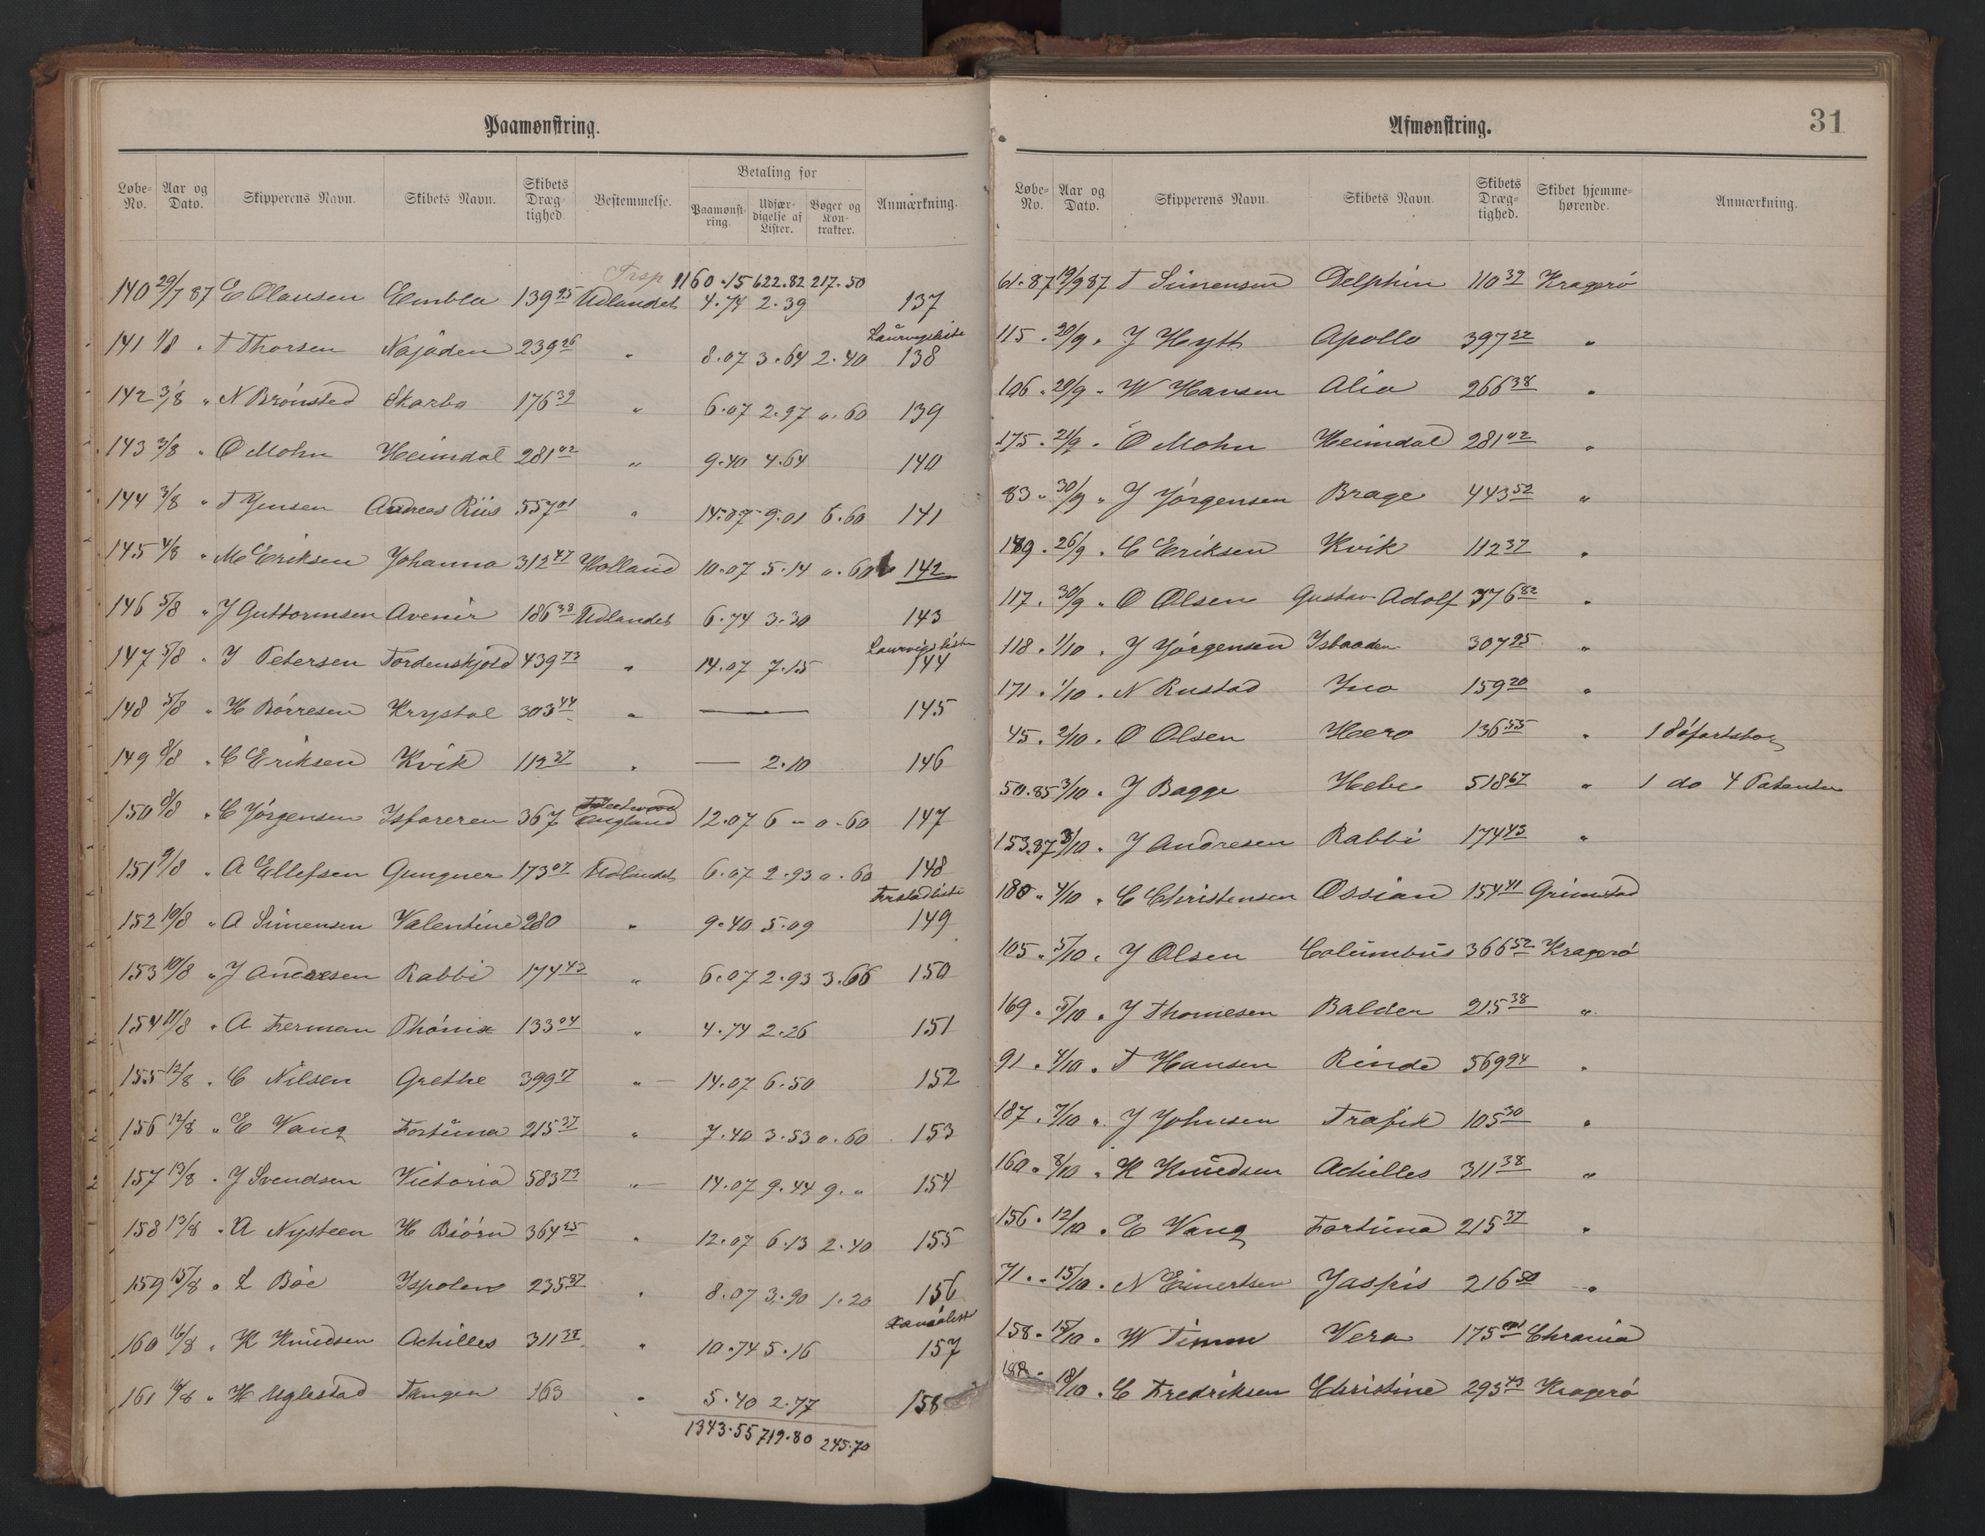 Paamønstring.
Løbe-No. Aar og Dato. Skipperens Navn. Skibets Navn. Skibets Dræg-tighed. Bestemmelse. Betaling for Paamønst-ring. Udfær-digelse af Lister. Bøger og Kon-trakter. Anmærkning.
Trsp 1160.15 622.82 217.50
140 29/7 87 E Olausen Embla 139 95 Udlandet 4.74 2.39 137
Laurvigliste
141 1/8 " T Thorsen Najaden 239 26 " 8.07 3.64 2.40 138
142 3/8 " N Brønsted Skarbo 176 39 " 6.07 2.97 0.60 139
143 3/8 " O Mohn Heimdal 281 02 " 9.40 4.64 140
144 3/8 " T Jensen Andreas Riis 557 01 " 14.07 9.01 6.60 141
145 4/8 " M Eriksen Johanna 312 47 Holland 10.07 5.14 0.60 142
146 5/8 " J Guttormsen Avenir 186 38 Udlandet 6.74 3.30 143
Laurvigsliste
147 5/8 " J Petersen Tordenskjold 439 73 " 14.07 7.15 144
148 5/8 " H Børresen Krystal 303 44 " — 145
149 8/8 " C Eriksen Kvik 112 37 " — 2.10 146
150 8/8 " C Jørgensen Isfareren 367 England 12.07 6 " 0.60 147
151 9/8 " A Ellefsen Gungner 173 07 Udlandet 6.07 2.93 0.60 148
152 10/8 " A Simensen Valentine 280 " 9.40 5.09 149
153 10/8 " J Andresen Rabbi 174 43 " 6.07 2.93 3.66 150
154 11/8 " A Ferman Phønix 133 04 " 4.74 2.26 151
155 12/8 " C Nilsen Grethe 399 17 " 14.07 6.50 152
156 12/8 " E Vang Fortuna 215 37 " 7.40 3.53 0.60 153
157 13/8 " J Svendsen Victoria 583 73 " 14.07 9.44 9. " 154
158 13/8 " A Nysteen H Biørn 364 25 " 12.07 6.13 2.40 155
159 15/8 " L Bøe Ispolen 235 37 " 8.07 3.90 1.20 156
160 16/8 " K Knudsen Achilles 311 38 " 10.74 5.16 157
161 16/8 " H Uglestad Tangen 163 " 5.40 2.77 158
1343.55 719.80 245.70
Afmønstring.
31
Løbe-No. Aar og Dato. Skipperens Navn. Skibets Navn. Skibets Dræg-tighed. Skibet hjemme-hørende. Anmærkning.
61.87 19/9 87 T Simensen Delphin 110 37 Kragerø
115 . 20/9 " J Heytt Apollo 397 22 "
106 " 20/9 " W Hansen Alia 266 38 "
175 . 21/9 " O Mohn Heimdal 281 02 "
83 " 30/9 " J Jørgensen Brage 443 52 "
149 . 26/9 " C Eriksen Kvik 112 37 "
117 . 30/9 " O Olsen Gustav Adolf 376 82 "
118 . 1/10 " J Jørgensen Isbaaden 307 95 "
171 . 1/10 " N Rustad Ino 159 20 "
45 . 2/10 " O Olsen Hero 136 55 " 1 Søfartsbog
50.85 3/10 " J Bagge Hebe 518 67 " 1 do 4 Patenter
153.87 3/10 " J Andresen Rabbi 174 43 "
180 " 4/10 " C Christensen Ossian 154 41 Grimstad
105 . 5/10 " J Olsen Columbus 366 52 Kragerø
169 . 5/10 " J Thomesen Balder 215 38 "
91 . 4/10 " T Hansen Rinde 569 94 "
187 . 7/10 " J Johnsen Trafik 105 30 "
160 . 8/10 " K Knudsen Achilles 311 38 "
156 . 12/10 " E Vang Fortuna 215 37 "
71 . " 15/10 " N Einertsen Jaspis 216 80 "
158 . 15/10 " W Timm Vera 175 01 Chrania
18/10 " C Fredriksen Christine 295 43 Kragerø